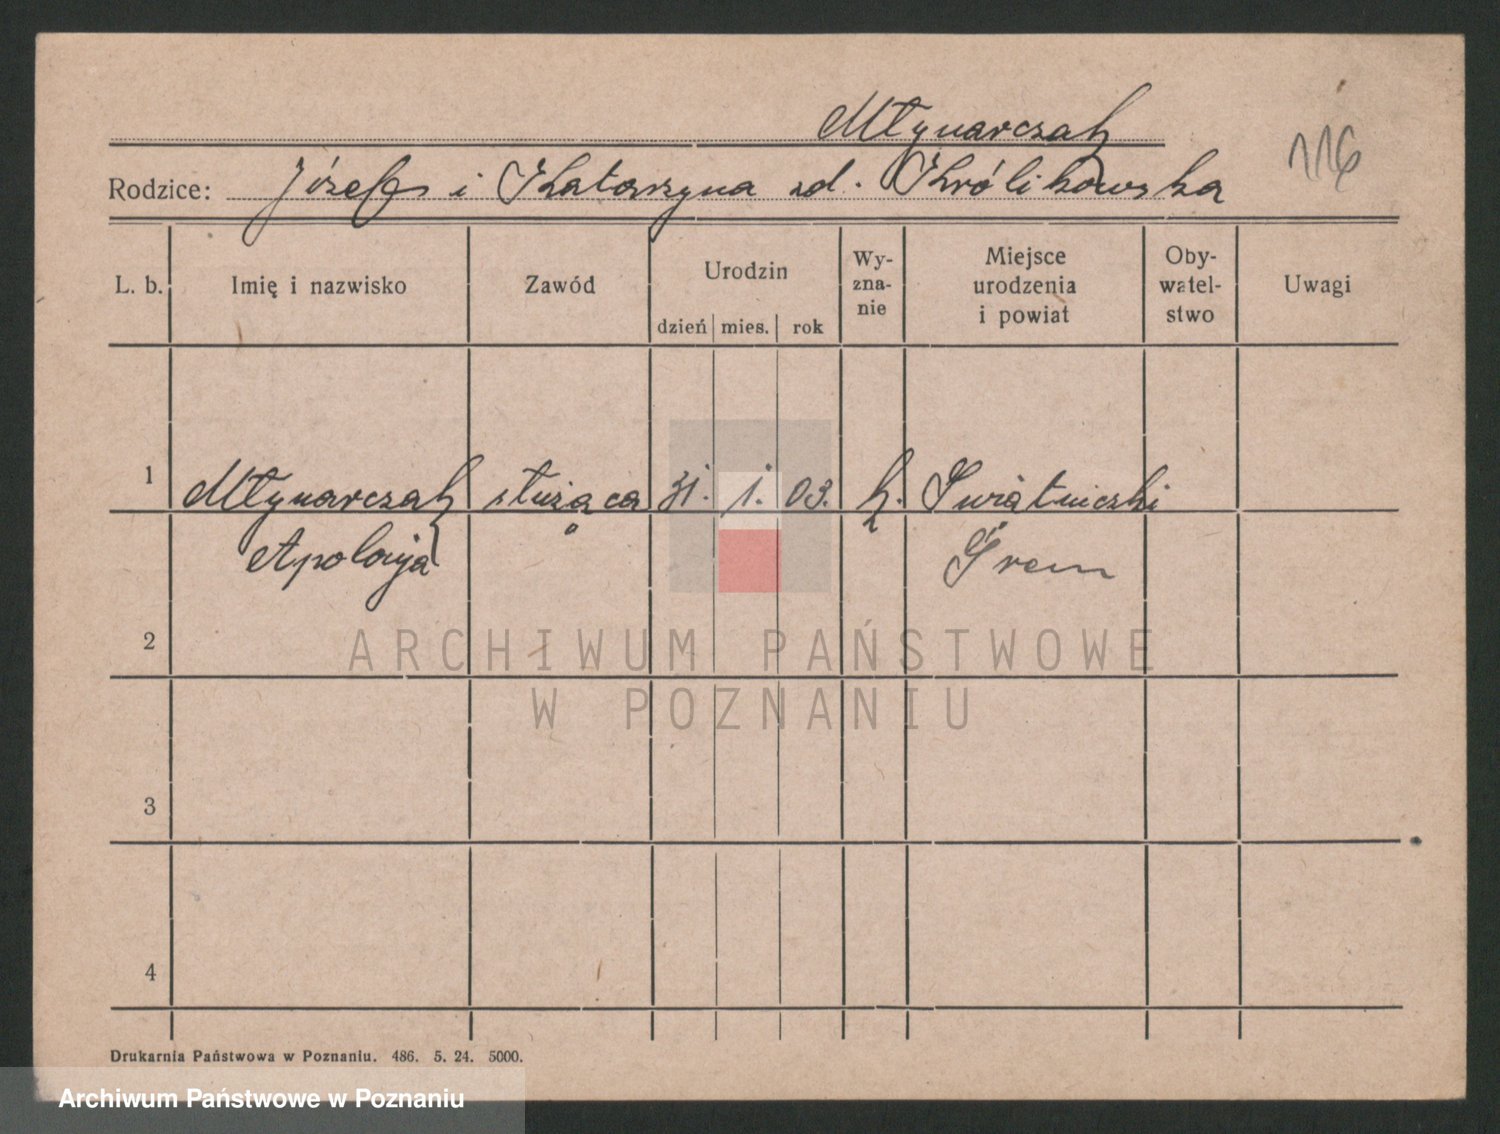 Młynarczak
116
Rodzice: Józef i Katarzyna zd. Królikowska
L. b. Imię i nazwisko Zawód Urodzin Wy-zna-nie Miejsce urodzenia i powiat Oby-watel-stwo Uwagi
dzień mies. rok
1 Młynarczak służąca 31. 1. 03. k. Świątniczki
Apolonja Śrem
2
ARCHIWUM PAŃSTWOWE
W POZNANIU
3
4
Drukarnia Państwowa w Poznaniu. 486. 5. 24. 5000.
Archiwum Państwowe w Poznaniu